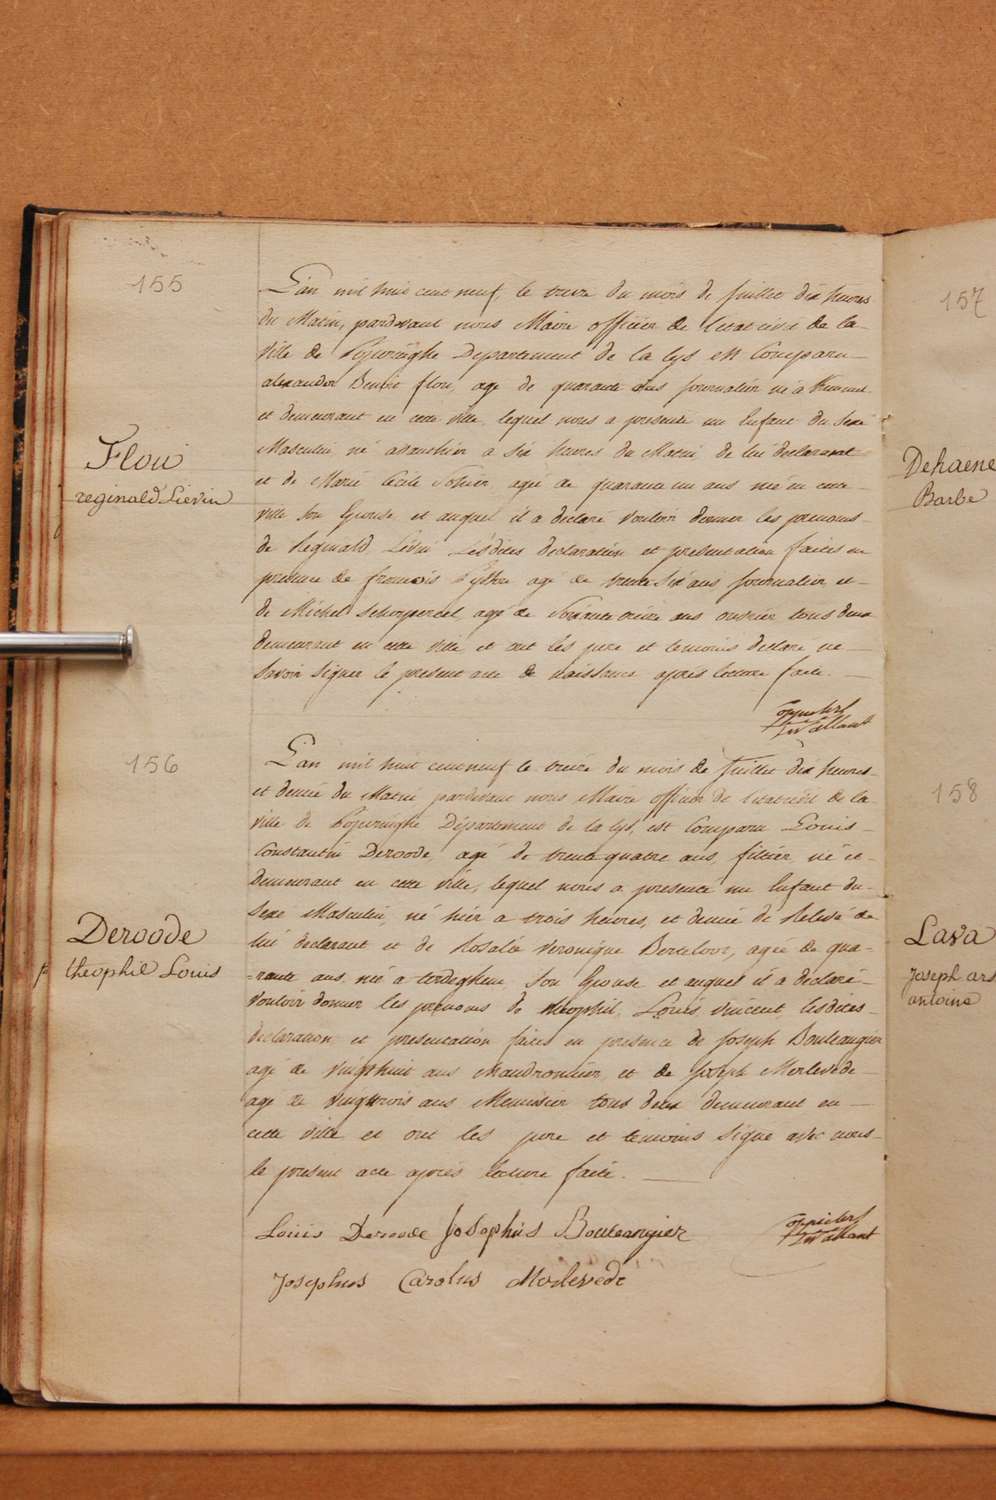 155
Flou
reginald Lievin
L'an mil huit cent neuf, le treize du mois de Juillet dix heures
du Matin, pardevant nous Maire officier de l'etat civil de la
ville de Poperinghe Departement de la Lys est Comparu
alexander Benoit flou, agé de quarante ans journalier né à Kemmel
et demeurant en cette ville, lequel nous a presenté un Enfant du Sexe
Masculin, né avanthier a six heures du Matin de lui declarant
et de Marie Cécile agée de quarante un ans née en cette
ville son Epouse, et auquel il a declaré vouloir donner les prenoms
de Reginald Lévin Lesdites declaration et presentation faites en
presence de francois agé de trente six ans journalier et
de Michel agé de Soixante treize ans ouvrier tous deux
demeurant en cette ville et ont les pere et temoins declaré ne
Savoir Signer le present acte de naissance après lecture faite.
156
Deroode
theophil Louis
L'an mil huit cent neuf le treize du mois de Juillet dix heures
et demie du Matin pardevant nous Maire officier de l'etat civil de la
ville de Poperinghe Département de la Lys, est Comparu Louis
Constantin Deroode, agé de trente quatre ans, filtier, né et
demeurant en cette ville, lequel nous a presenté un Enfant du
Sexe Masculin, né hier a trois heures, et demie de Relevé de
lui declarant et de Rosalie Veronique Berteloot, agée de qua-
-rante ans née a terdeghem, son Epouse et auquel il a déclaré
Vouloir donner les prenoms de theophil, Louis, vincent, lesdites
declaration et presentation faites en presence de Joseph Bouleangier
agé de vingt huit ans et de Joseph Merlevede
agé de vingt trois ans Menuisier tous deux demeurant en
cette ville et ont les pere et temoins signé avec nous
le present acte après lecture faite.
Louis Deroode Josephus Bouleangier
Josephus Carolus Merlevede
157
Dehaene
Barbe
158
Lava
Joseph ars
antoine